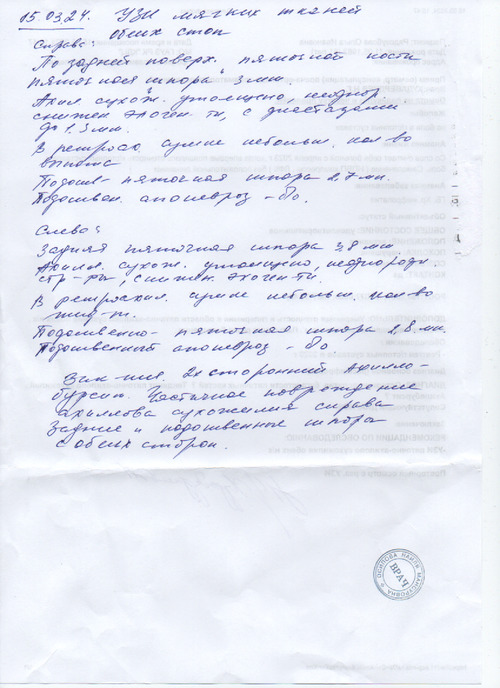 15.03.24. УЗИ мягких тканей
обеих стоп
Справа:
По задней поверх. пяточной кости
пяточная шпора 3 мм.
Ахил. сухож. утолщено, неоднор.
снижен эхоген-ти, с диастазами
до 1,3 мм.
В ретроах. сумке небольш. кол-во
выпота
Подошв- пяточная шпора 2,7 мм.
Подошвен. апоневроз - б/о.
Слева:
Задняя пяточная шпора 3,8 мм.
Ахилл. сухож. утолщено, неоднородн
стр-ры, снижен. эхоген-ти.
В ретроахил. сумке небольш. кол-во
жид-ти.
Подошвенно- пяточная шпора 2,8 мм.
Подошвенный апоневроз - б/о
Зак-ние. 2х сторонний Ахилло-
бурсит. Частичное повреждение
ахиллова сухожилия справа
Задние и подошвенные шпоры
с обеих сторон.
ВРАЧ